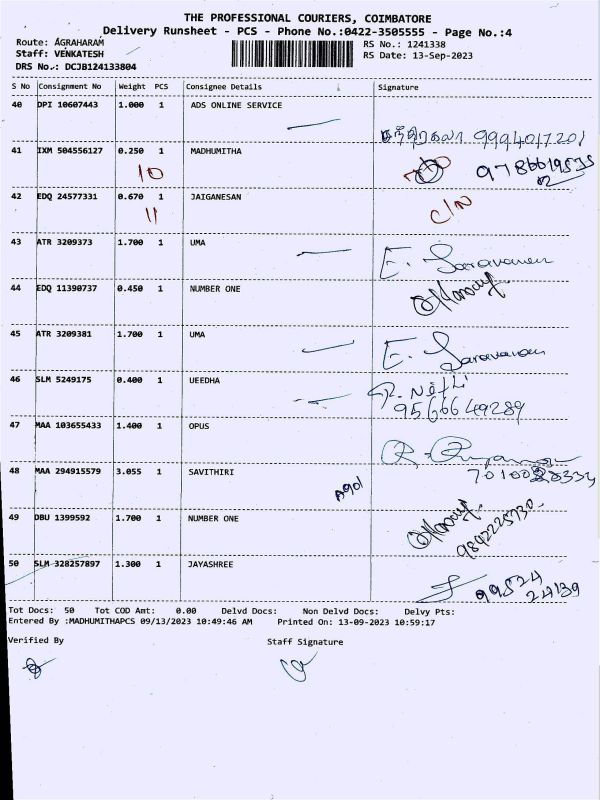 THE PROFESSIONAL COURIERS, COIMBATORE
Delivery Runsheet - PCS - Phone No.:0422-3505555 - Page No.:4
Route: AGRAHARAM
RS No.: 1241338
Staff: VENKATESH
RS Date: 13-Sep-2023
DRS No.: DCJB124133804
S No Consignment No Weight PCS Consignee Details Signature
40 DPI 10607443 1.000 1 ADS ONLINE SERVICE
9994017201
41 IXM 504556127 0.250 1 MADHUMITHA
10 9786619535
42 EDQ 24577331 0.670 1 JAIGANESAN
11 C/N
43 ATR 3209373 1.700 1 UMA
E. Saravanan
44 EDQ 11390737 0.450 1 NUMBER ONE
45 ATR 3209381 1.700 1 UMA
E. Saravanan
46 SLM 5249175 0.400 1 UEEDHA
9566649289
47 MAA 103655433 1.400 1 OPUS
48 MAA 294915579 3.055 1 SAVITHIRI
49 DBU 1399592 1.700 1 NUMBER ONE
9842225730
50 SLM 328257897 1.300 1 JAYASHREE
99524
24139
Tot Docs: 50 Tot COD Amt: 0.00 Delvd Docs: Non Delvd Docs: Delvy Pts:
Entered By :MADHUMITHAPCS 09/13/2023 10:49:46 AM Printed On: 13-09-2023 10:59:17
Verified By Staff Signature